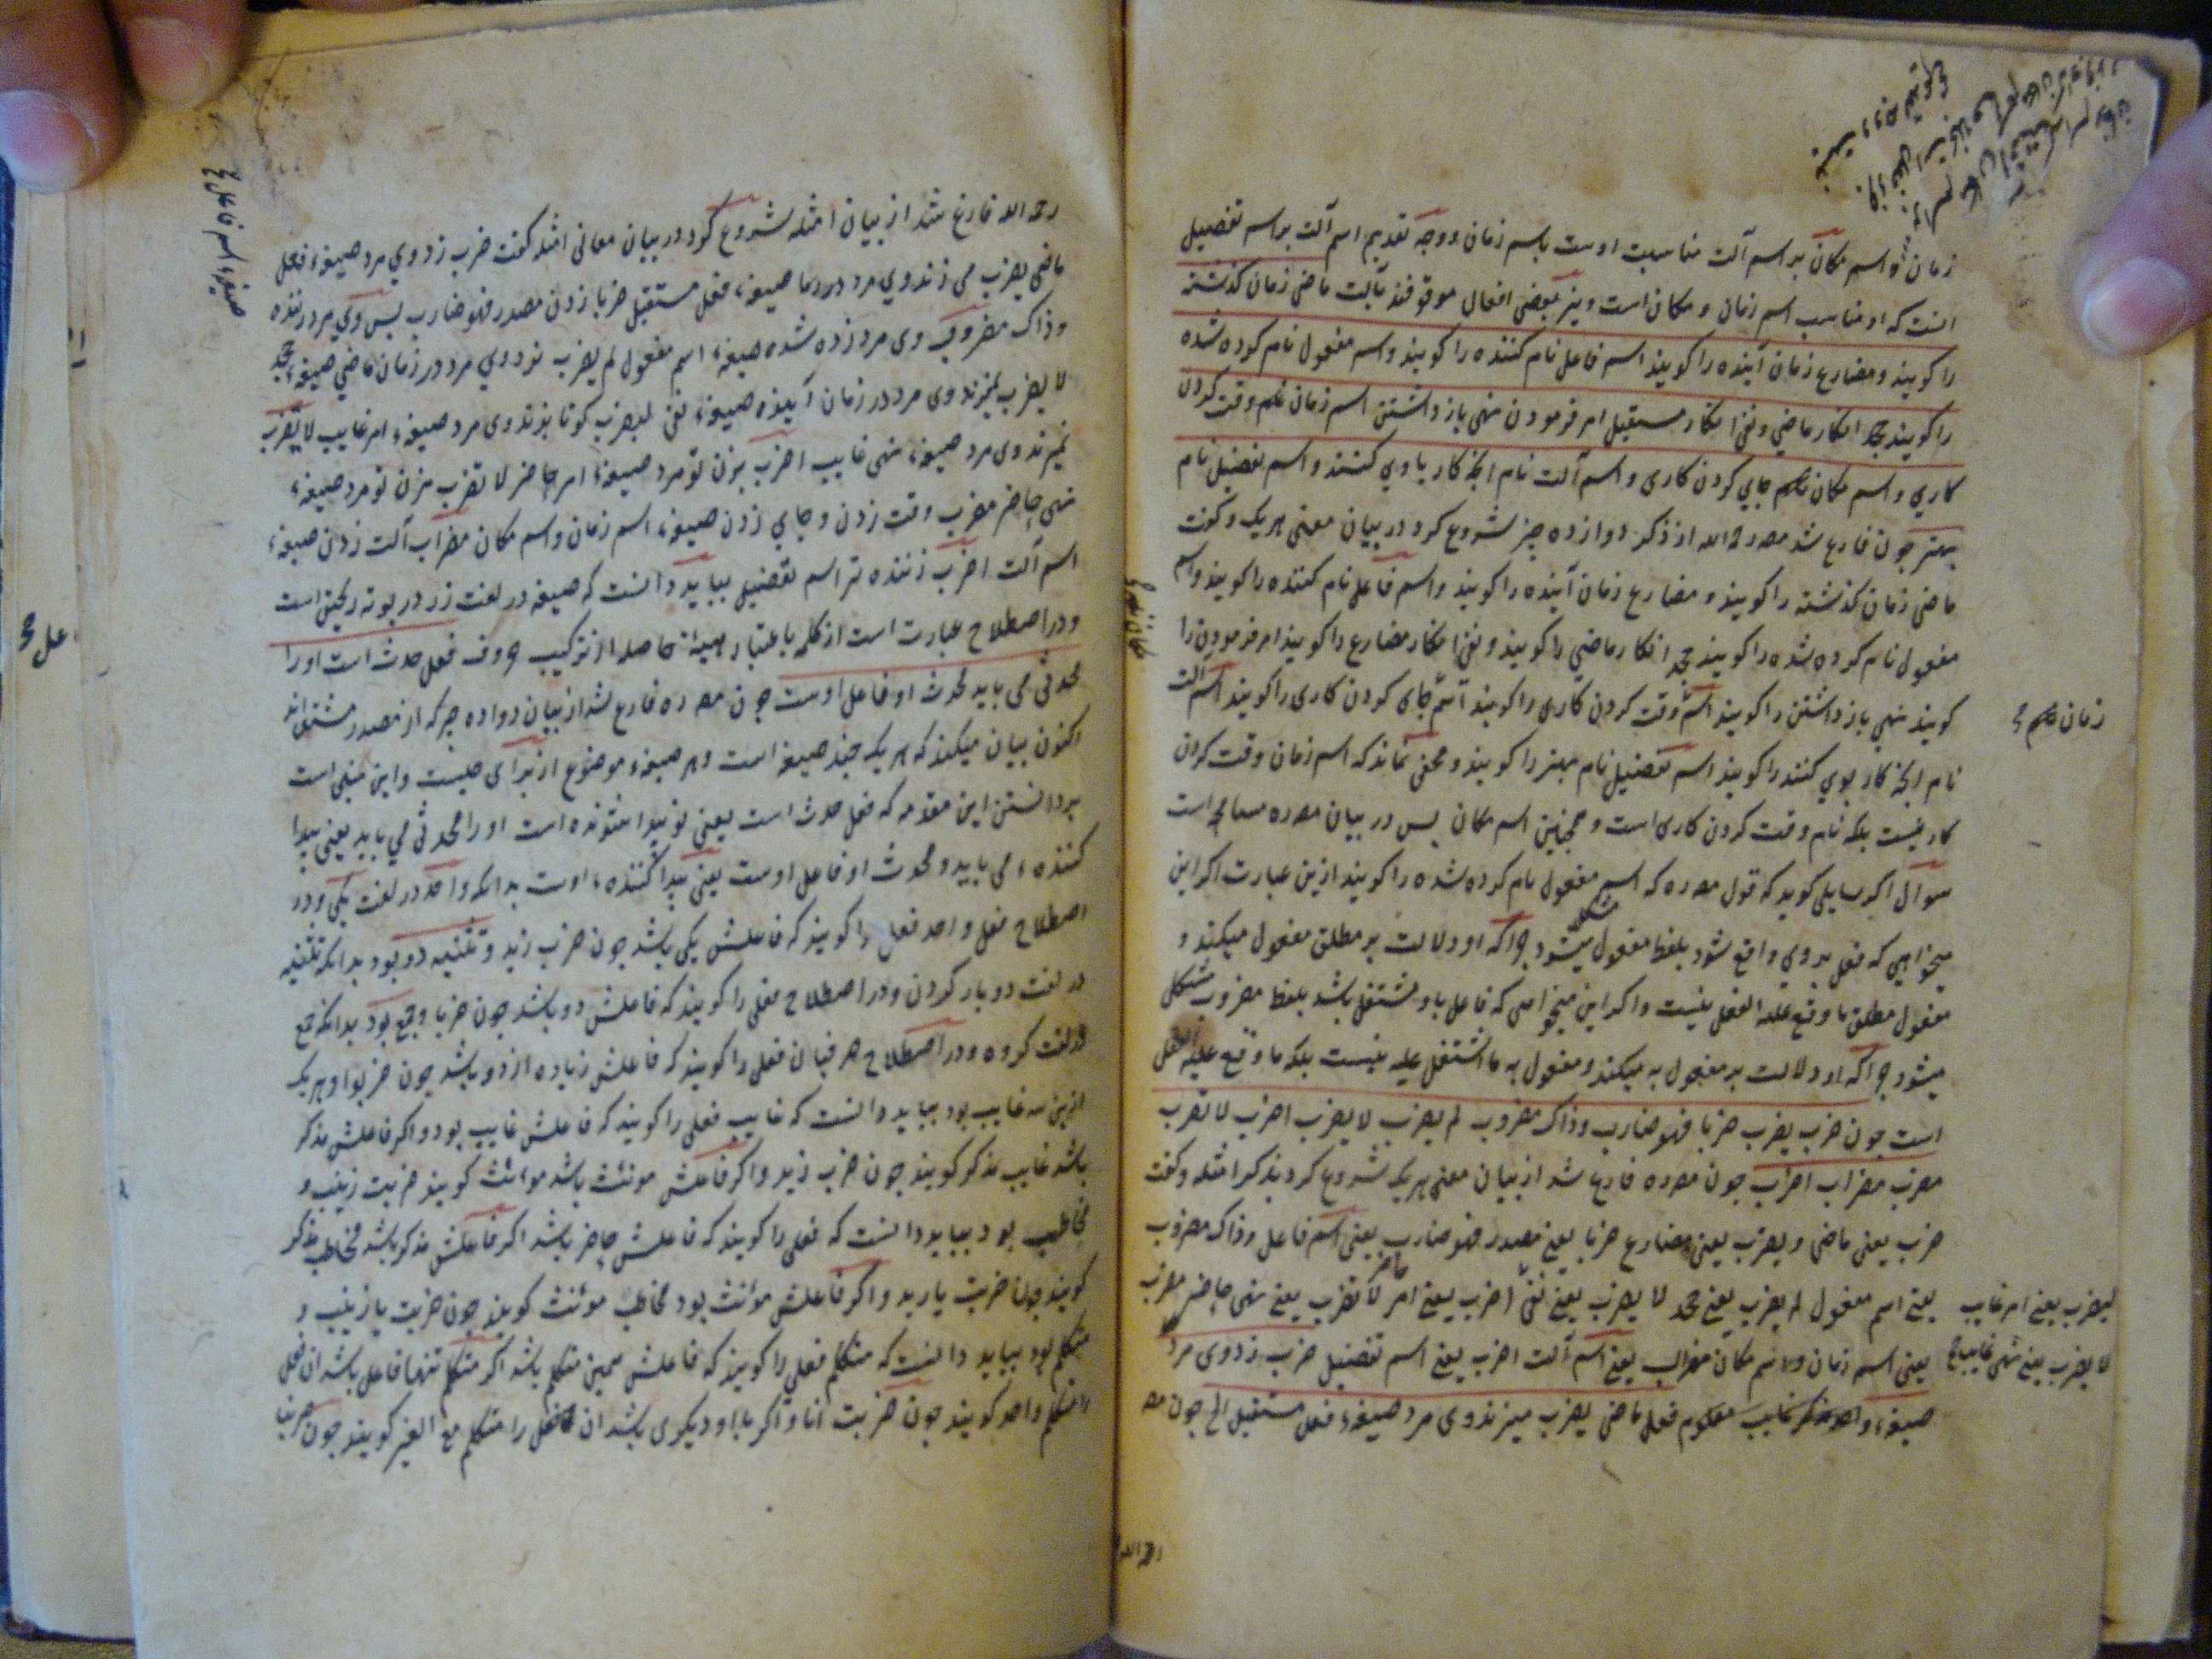 زمان و اسم مکان بر اسم آلت مناسبت اوست باسم زمان و وجه تقدیم اسم آلت بر اسم تفضیل
انست که او مناسب اسم زمان و مکان است و نیز بعضی افعال موقوفند بآلت ماضی زمان کذشته
را کویند و مضارع زمان آینده را کویند اسم فاعل نام کننده را کویند و اسم مفعول نام کرده شده
را کویند جحد انکار ماضی و نفی انکار مستقبل امر فرمودن نهی باز داشتن اسم زمان نام وقت کردن
کاری و اسم مکان نام جای کردن کاری و اسم آلت نام انچه کار باوی کنند و اسم تفضیل نام
بهتر چون فارغ شد مصـ رحمه الله از ذکر دوازده چیز شروع کرد در بیان معنی هر یک و کفت
ماضی زمان کذشته را کویند و مضارع زمان آینده را کویند و اسم فاعل نام کننده را کویند و اسم
مفعول نام کرده شده را کویند جحد انکار ماضی را کویند و نفی انکار مضارع را کویند امر فرمودن را
کویند نهی باز داشتن را کویند اسم وقت کردن کاری را کویند اسم جای کردن کاری را کویند اسم آلت
زمان
نام انچه کار بوی کنند را کویند اسم تفضیل نام بهتر را کویند و مخفی نماند که اسم زمان وقت کردن
کار نیست بلکه نام وقت کردن کاری است و همچنین اسم مکان پس در بیان مصـ ره مسامحه است
سوال اکر سایلی کوید که قول مصـ ره که اسم مفعول نام کرده شده را کویند ازین عبارت اکر این
میخواهی که فعل بر وی واقع شود بلفظ مفعول مشکل میشود چرا که او دلالت بر مطلق مفعول میکند و
مفعول مطلق ما وقع علیه الفعل نیست و اکر این میخواهی که فاعل باو مشتغل باشد بلفظ مضروب مشکل
میشود چرا که او دلالت بر مفعول به میکند و مفعول به ما اشتغل علیه نیست بلکه ما وقع علیه الفعل
است چون ضرب یضرب ضربا فهو ضارب و ذاک مضروب لم یضرب لا یضرب اضرب لا تضرب
مضرب مضراب اضرب چون مصـ ره فارغ شد از بیان معنی هر یک شروع کرد بذکر امثله و کفت
ضرب یعنی ماضی و یضرب یعنی مضارع ضربا یعنی مصدر فهو ضارب یعنی اسم فاعل و ذاک مضروب
یعنی اسم مفعول لم یضرب یعنی جحد لا یضرب یعنی نفی اضرب یعنی امر حاضر لا تضرب یعنی نهی حاضر مضرب
لیضرب یعنی امر غایب
لا یضرب یعنی نهی غایب
یعنی اسم زمان و اسم مکان مضراب یعنی اسم آلت اضرب یعنی اسم تفضیل ضرب زد وی مرد
صیغهء واحد مذکر غایب معلوم فعل ماضی یضرب میزند وی مرد صیغهء فعل مستقبل الخ چون مصـ
رحمه الله
رحمه الله فارغ شد از بیان امثله شروع کرد در بیان معانی امثله کفت ضرب زد وی مرد صیغهء فعل
ماضی یضرب می زند وی مرد صیغهء فعل مستقبل ضربا زدن مصدر فهو ضارب پس وی مرد زننده
صیغهء اسم فاعل
و ذاک مضروب وی مرد زده شده صیغهء اسم مفعول لم یضرب نزد وی مرد در زمان ماضی صیغهء جحد
لا یضرب نمیزند وی مرد در زمان آینده صیغهء نفی لیضرب کو تا بزند وی مرد صیغهء امر غایب لا یضرب
نمیزند وی مرد صیغهء نهی غایب اضرب بزن تو مرد صیغهء امر حاضر لا تضرب مزن تو مرد صیغهء
نهی حاضر مضرب وقت زدن و جای زدن صیغهء اسم زمان و اسم مکان مضراب آلت زدن صیغهء
اسم آلت اضرب زننده تر اسم تفضیل بباید دانست که صیغه در لغت زر در بوته ریختن است
و در اصطلاح عبارت است از کلمه باعتبار هیئة حاصله از ترکیب حروف فعل حدث است او را
محدثی می باید محدث او فاعل اوست چون مصـ ره فارغ شد از بیان دوازده چیز که از مصدر مشتق اند
اکنون بیان میکند که هر یک چند صیغه است و هر صیغهء موضوع از برای چیست و این مبنی است
بر دانستن این مقدمه که فعل حدث است یعنی نو پیدا شونده است او را محدثی می باید یعنی پیدا
کننده ء می باید و محدث او فاعل اوست یعنی پیدا کننده ء اوست بدانکه واحد در لغت یکی و در
اصطلاح فعل واحد فعلی را کویند که فاعلش یکی باشد چون ضرب زید و تثنیه دو بود بدانکه تثنیه
در لغت دو بار کردن و در اصطلاح فعلی را کویند که فاعلش دو باشد چون ضربا و جمع بود بدانکه جمع
در لغت کروه و در اصطلاح صرفیان فعلی را کویند که فاعلش زیاده از دو باشد چون ضربوا و هر یک
ازین سه غایب بود بباید دانست که غایب فعلی را کویند که فاعلش غایب بود و اکر فاعلش مذکر
باشد غایب مذکر کویند چون ضرب زید و اکر فاعلش مونث باشد مونث کویند ضربت زینب و
مخاطب بود بباید دانست که فعلی را کویند که فاعلش حاضر باشد اکر فاعلش مذکر باشد مخاطب مذکر
کویند چون ضربت یا زید و اکر فاعلش مونث بود مخاطب مونث کویند چون ضربت یا زینب و
متکلم بود بباید دانست که متکلم فعلی را کویند که فاعلش همین متکلم باشد اکر متکلم تنها فاعل باشد ان فعل
را متکلم واحد کویند چون ضربت انا و اکر با او دیکری باشد ان فعل را متکلم مع الغیر کویند چون ضربنا